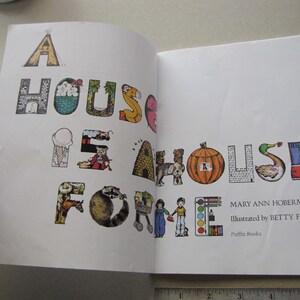 A
HOUSE
IS A HOUSE
FOR ME
MARY ANN HOBERM
Illustrated by BETTY F
Puffin Books